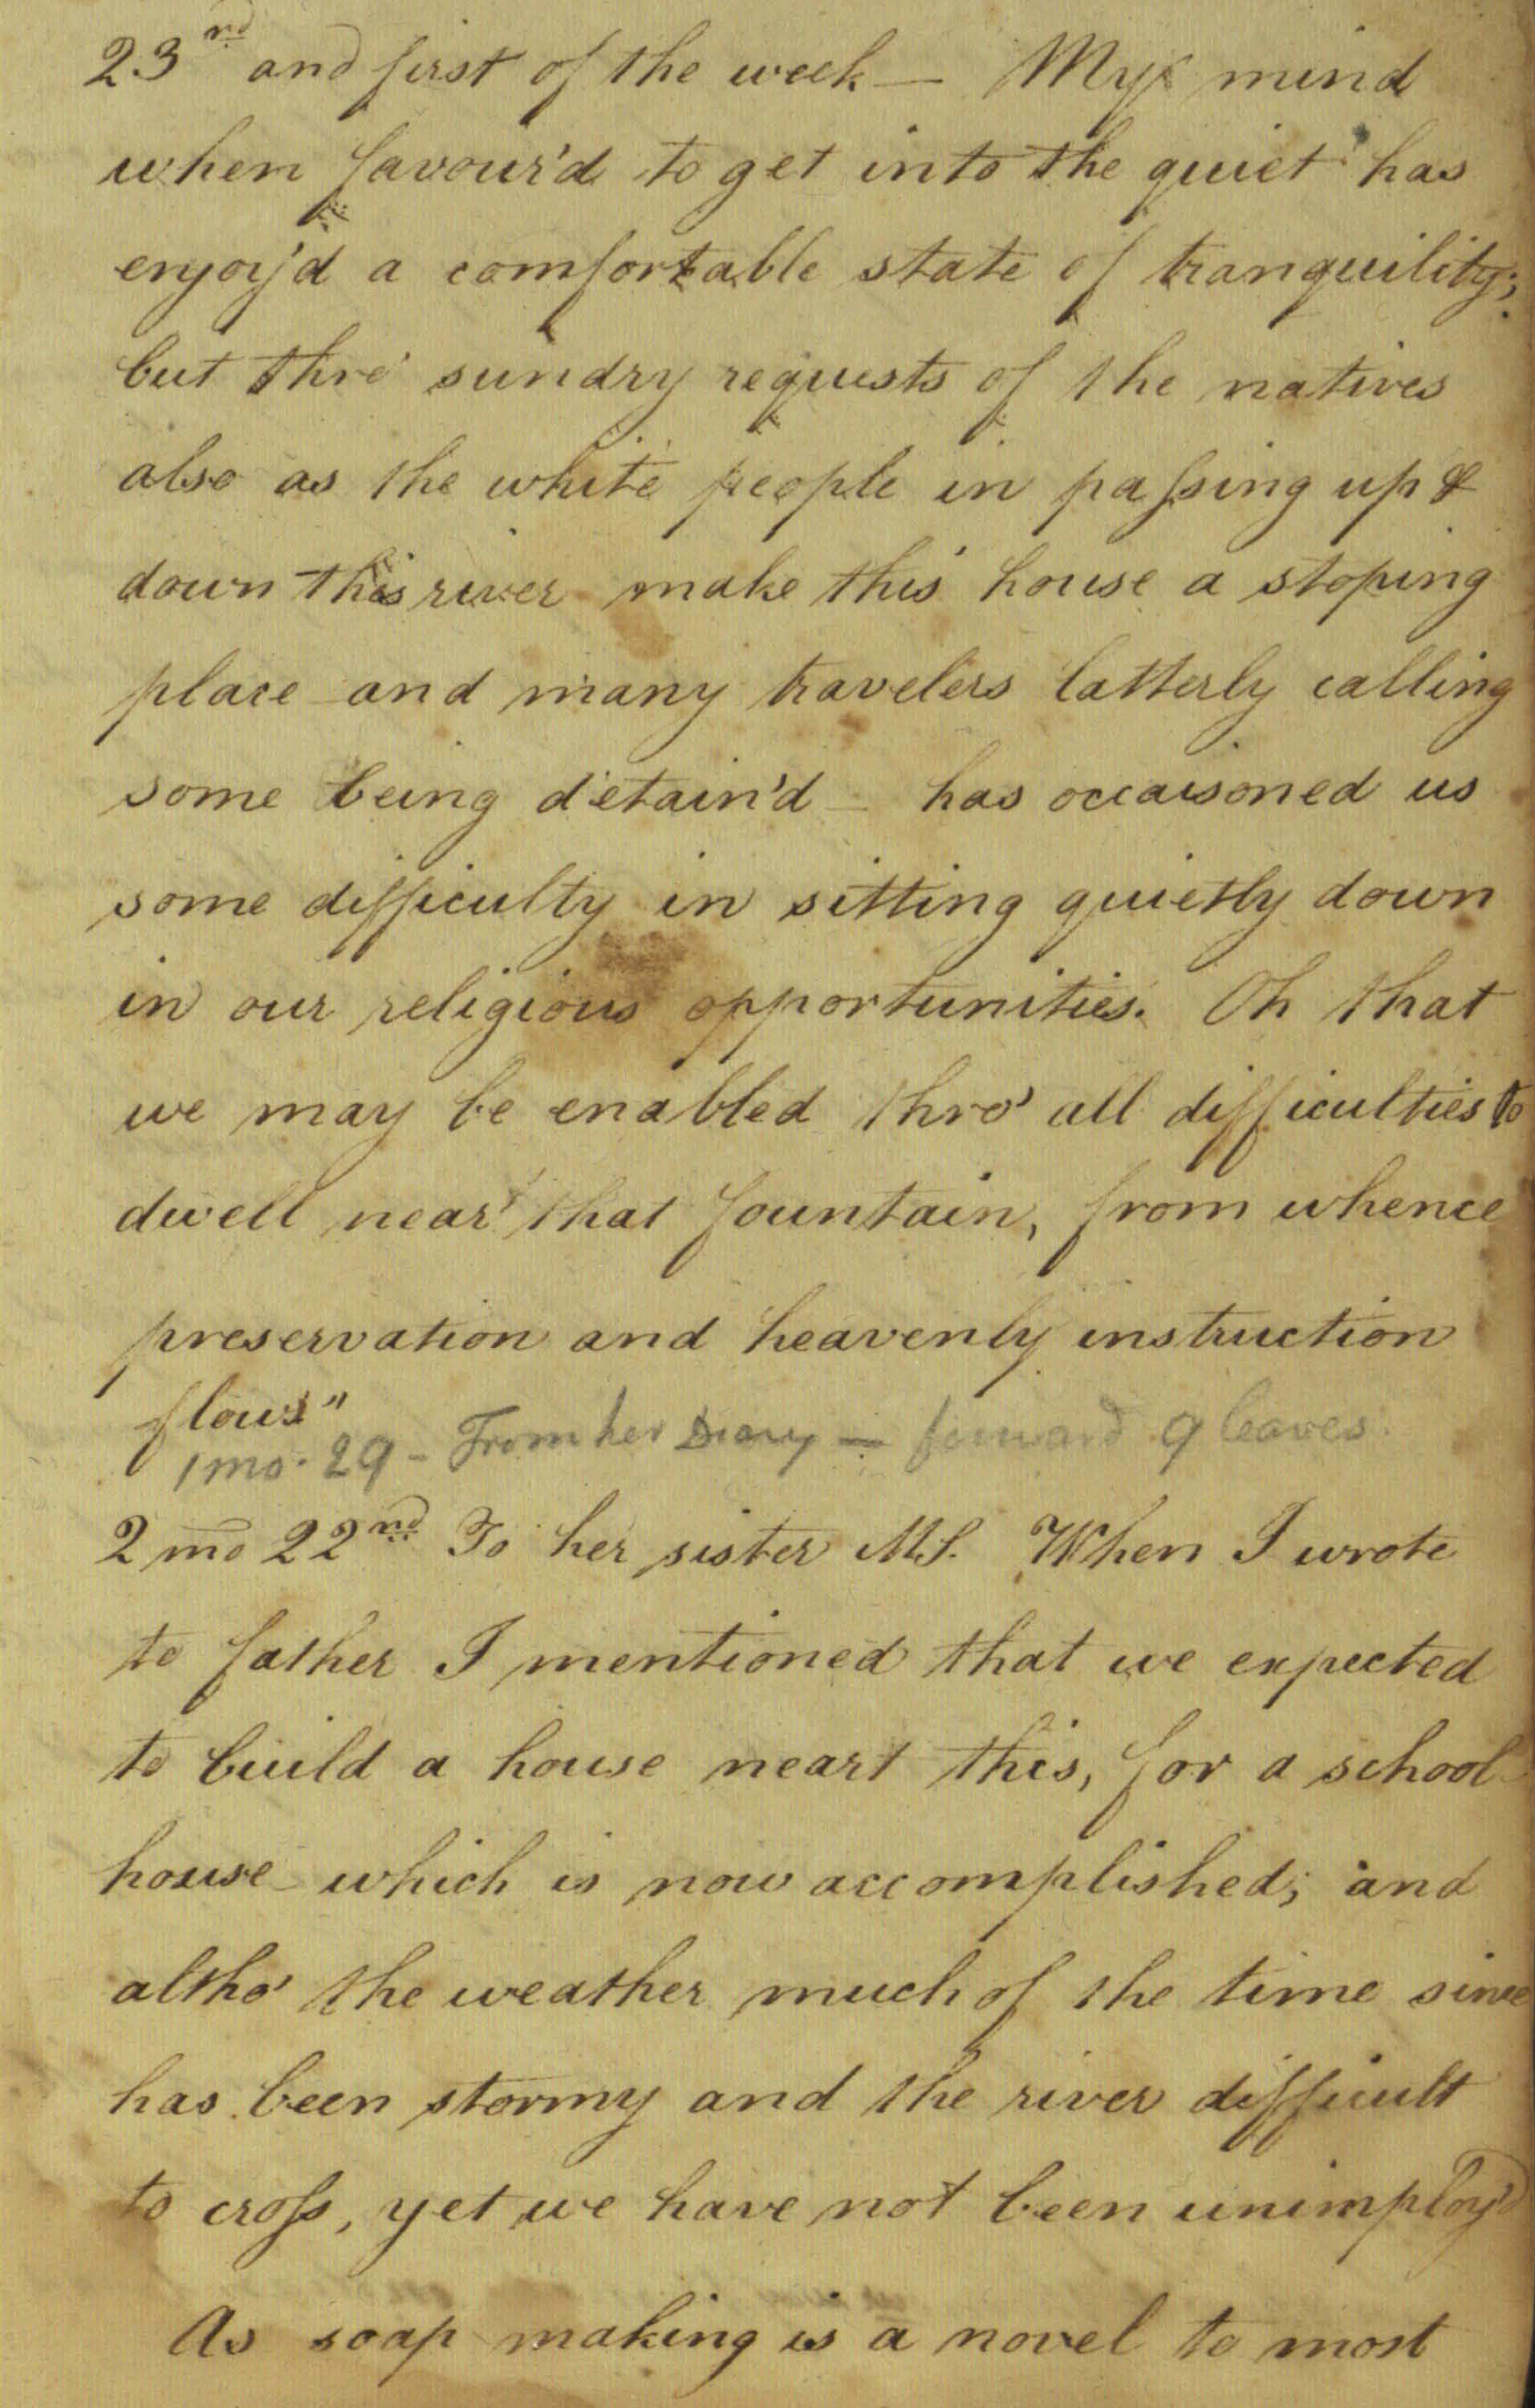 23rd and first of the week — My mind
when favour'd to get into the quiet has
enjoy'd a comfortable state of tranquility;
but thro' sundry requests of the natives
also as the white people in passing up &
down this river make this house a stoping
place and many travelers latterly calling
some being detain'd — has occaisoned us
some difficulty in sitting quietly down
in our religious opportunities. Oh that
we may be enabled thro' all difficulties to
dwell near that fountain, from whence
preservation and heavenly instruction
flows"
1 mo. 29 - From her Diary — forward 9 leaves.
2 mo 22nd To her sister M.S. When I wrote
to father I mentioned that we expected
to build a house neart this, for a school
house which is now accomplished; and
altho' the weather much of the time since
has been stormy and the river difficult
to cross, yet we have not been unimploy'd
As soap making is a novel to most